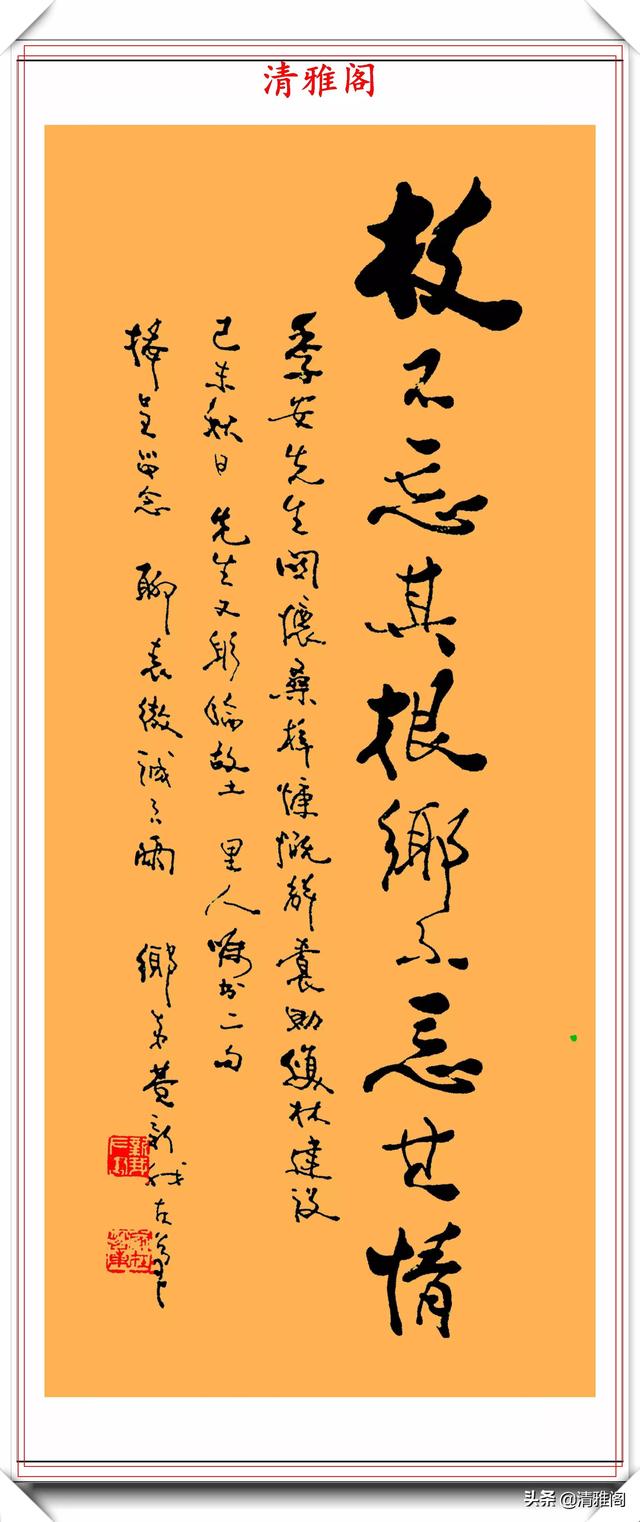 清雅阁
枝不忘其根鄉不忘其情
季安先生関懷桑梓慷慨解囊助瓊林建設
己未秋日 先生又躬臨故土 里人囑书二句
捧呈留念 聊表微誠云爾 鄉弟
头条 @清雅阁